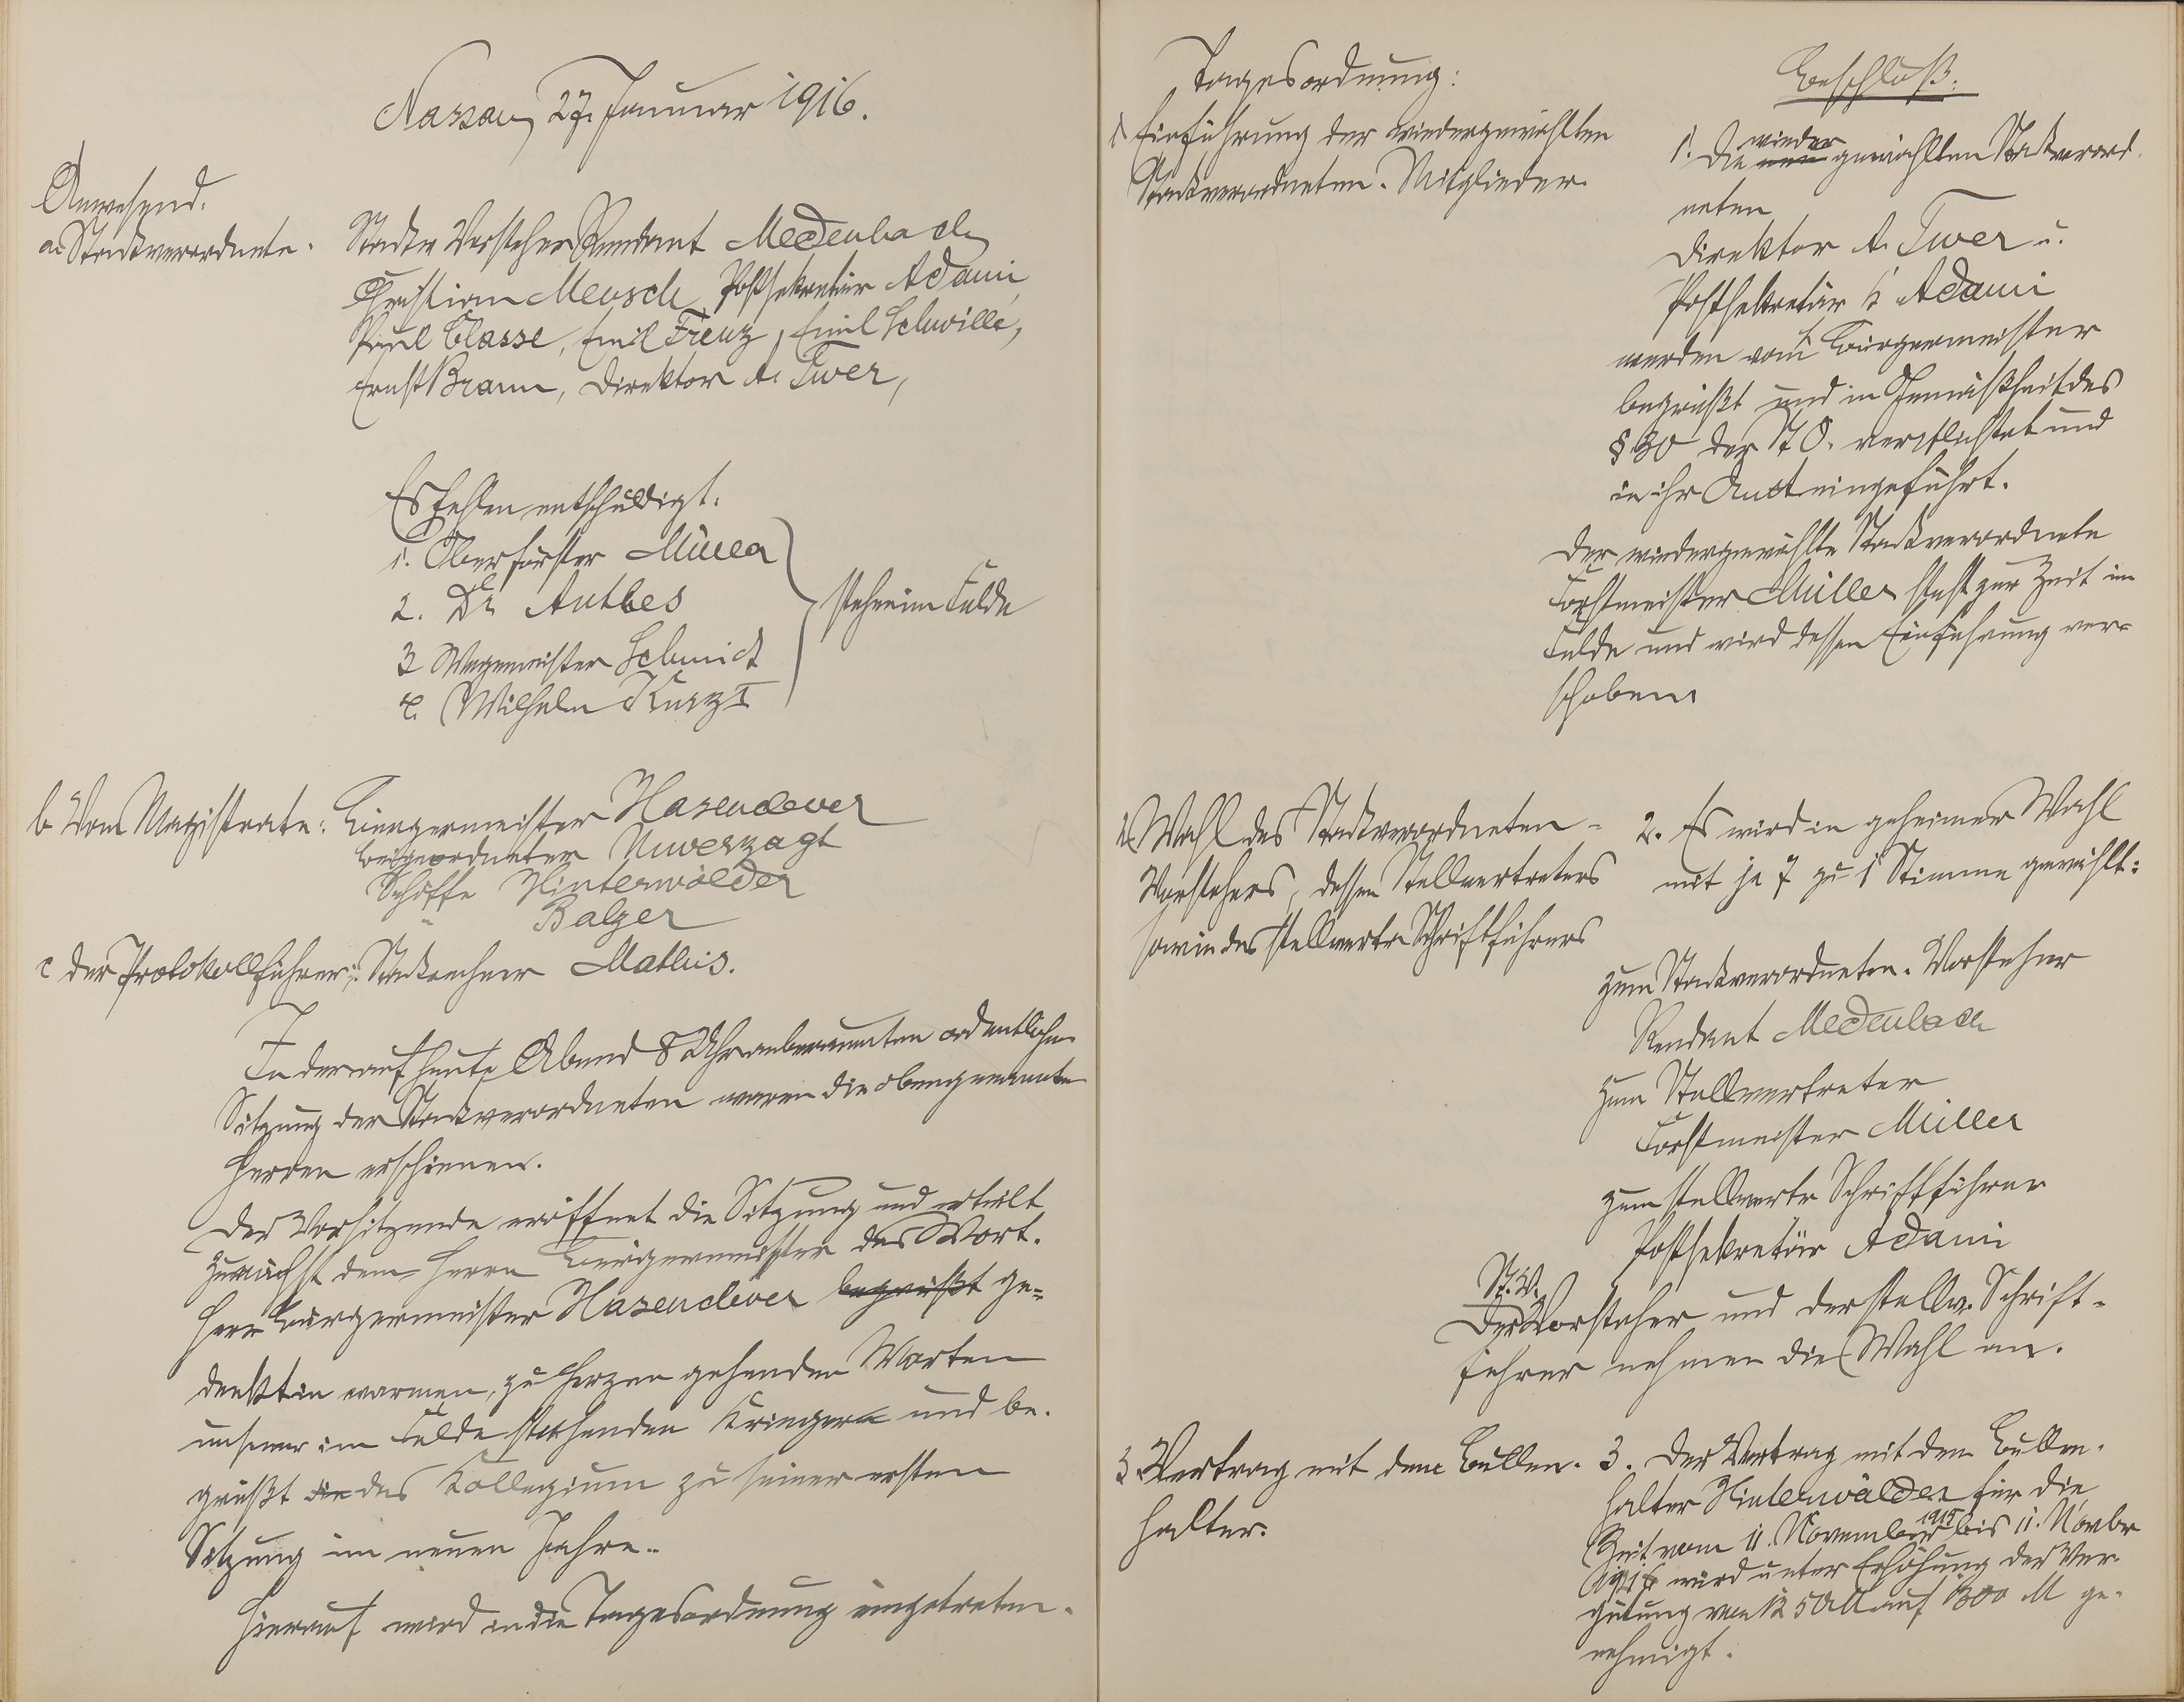 Nassau, 27. Januar 1916.
Anwesend.
a. Stadtverordnete.
Stadtv Vorsteher Rendant Medenbach
Christian Mensch, Postsekretär Adami,
Paul Classe, Emil Frenz, Emil Schwille,
Ernst Braun, Direktor A. Twer,
Es fehlen entschuldigt:
1. Oberförster Müller
2. Dr Anthes
3 Wegemeister Schmidt
4. Wilhelm Kurz I
stehen im Felde
b Vom Magistrate: Bürgermeister Hasenclever
Beigeordneter Unverzagt
Schöffe Hinterwälder
" Balzer
c Der Protokollführer: Stadtrechner Mathis.
In der auf heute Abend 8 Uhr anberaumten ordentlichen
Sitzung der Stadtverordneten waren die obengenannten
Herren erschienen.
Der Vorsitzende eröffnet die Sitzung und erteilt
zunächst dem Herrn Bürgermeister das Wort.
Herr Bürgermeister Hasenclever begrüßt ge-
denkt in warmen, zu Herzen gehenden Worten
unserer im Felde stehenden Krieger und be-
grüßt die das Kollegium zu seiner ersten
Sitzung im neuen Jahre.
Hierauf wird in die Tagesordnung eingetreten.
Tagesordnung:
1 Einführung der wiedergewählten
Stadtverordneten-Mitglieder.
Beschluß:
1. Die neu wieder gewählten Stadtverord-
neten
Direktor A. Twer u.
Postsekretär K Adami
werden vom Bürgermeister
begrüßt und in Gemäßheit des
§ 30 der St O. verpflichtet und
in ihr Amt eingeführt.
Der wiedergewählte Stadtverordnete
Forstmeister Müller steht zur Zeit im
Felde und wird dessen Einführung ver-
schoben.
2 Wahl des Stadtverordneten-
Vorstehers, dessen Stellvertreters
sowie des stellvertr Schriftführers
2. Es wird in geheimer Wahl
mit je 7 zu 1 Stimme gewählt:
zum Stadtverordneten-Vorsteher
Rendant Medenbach
zum Stellvertreter
Forstmeister Müller
zum stellvertr Schriftführer
Postsekretär Adami
St. V.
Der Vorsteher und der stellv. Schrift-
führer nehmen die Wahl an.
3. Vertrag mit dem Bullen-
halter.
3. Der Vertrag mit dem Bullen-
halter Hinterwälder für die
Zeit vom 11. November 1915 bis 11. Novbr
1916 wird unter Erhöhung der Ver-
gütung von 1250 M auf 1300 M ge-
nehmigt.